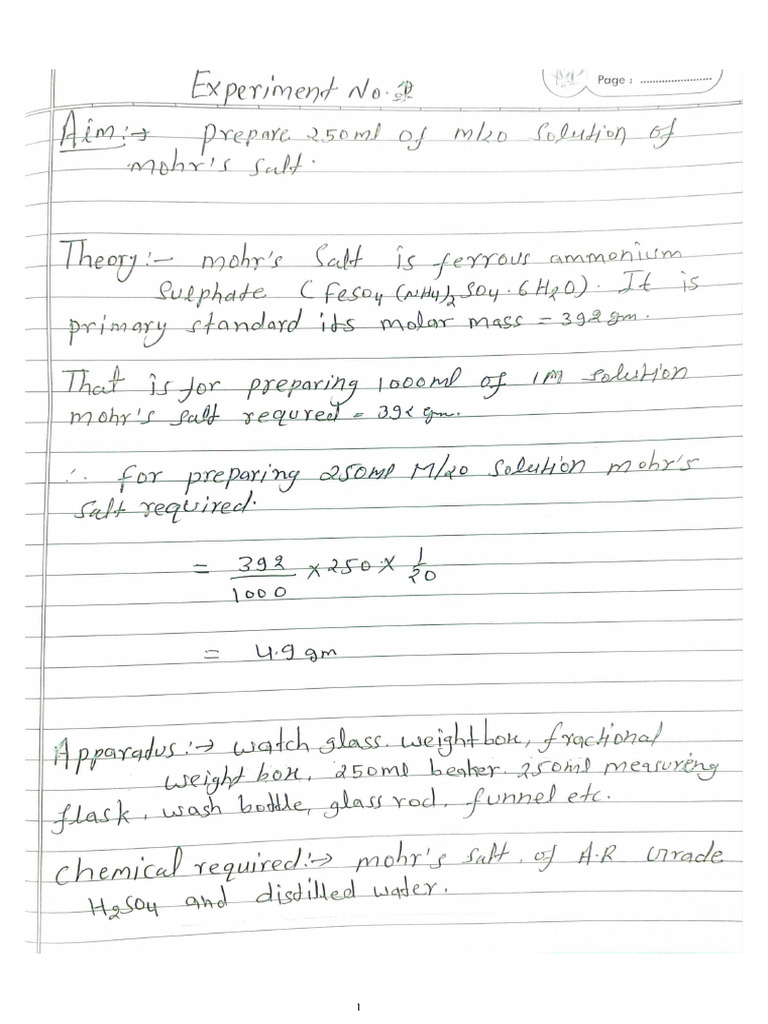 Page : ........................
Experiment No.
Aim :→ prepare 250ml of M/20 solution of
mohr's salt.
Theory :- mohr's Salt is ferrous ammonium
Sulphate ( FeSO4 (NH4)2 SO4 . 6H2O). It is
primary standard its molar mass = 392 gm.
That is for preparing 1000ml of 1M solution
mohr's salt requred = 392 gm.
∴ for preparing 250ml M/20 solution mohr's
salt required.
= 392/1000 × 250 × 1/20
= 4.9 gm
Apparadus :→ watch glass. weight box, fractional
weight box, 250ml beaker. 250ml measuring
flask, wash bottle, glass rod, funnel etc.
chemical required :→ mohr's salt of A.R Grade
H2SO4 and distilled water.
1